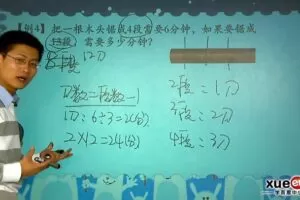 【例4】把一根木头锯成4段需要6分钟,如果要锯成
13段 需要多少分钟?
12刀
刀数=段数-1
2段:1刀
1刀:6÷3=2(分)
3段:2刀
2×12=24(分)
4段:3刀
xue